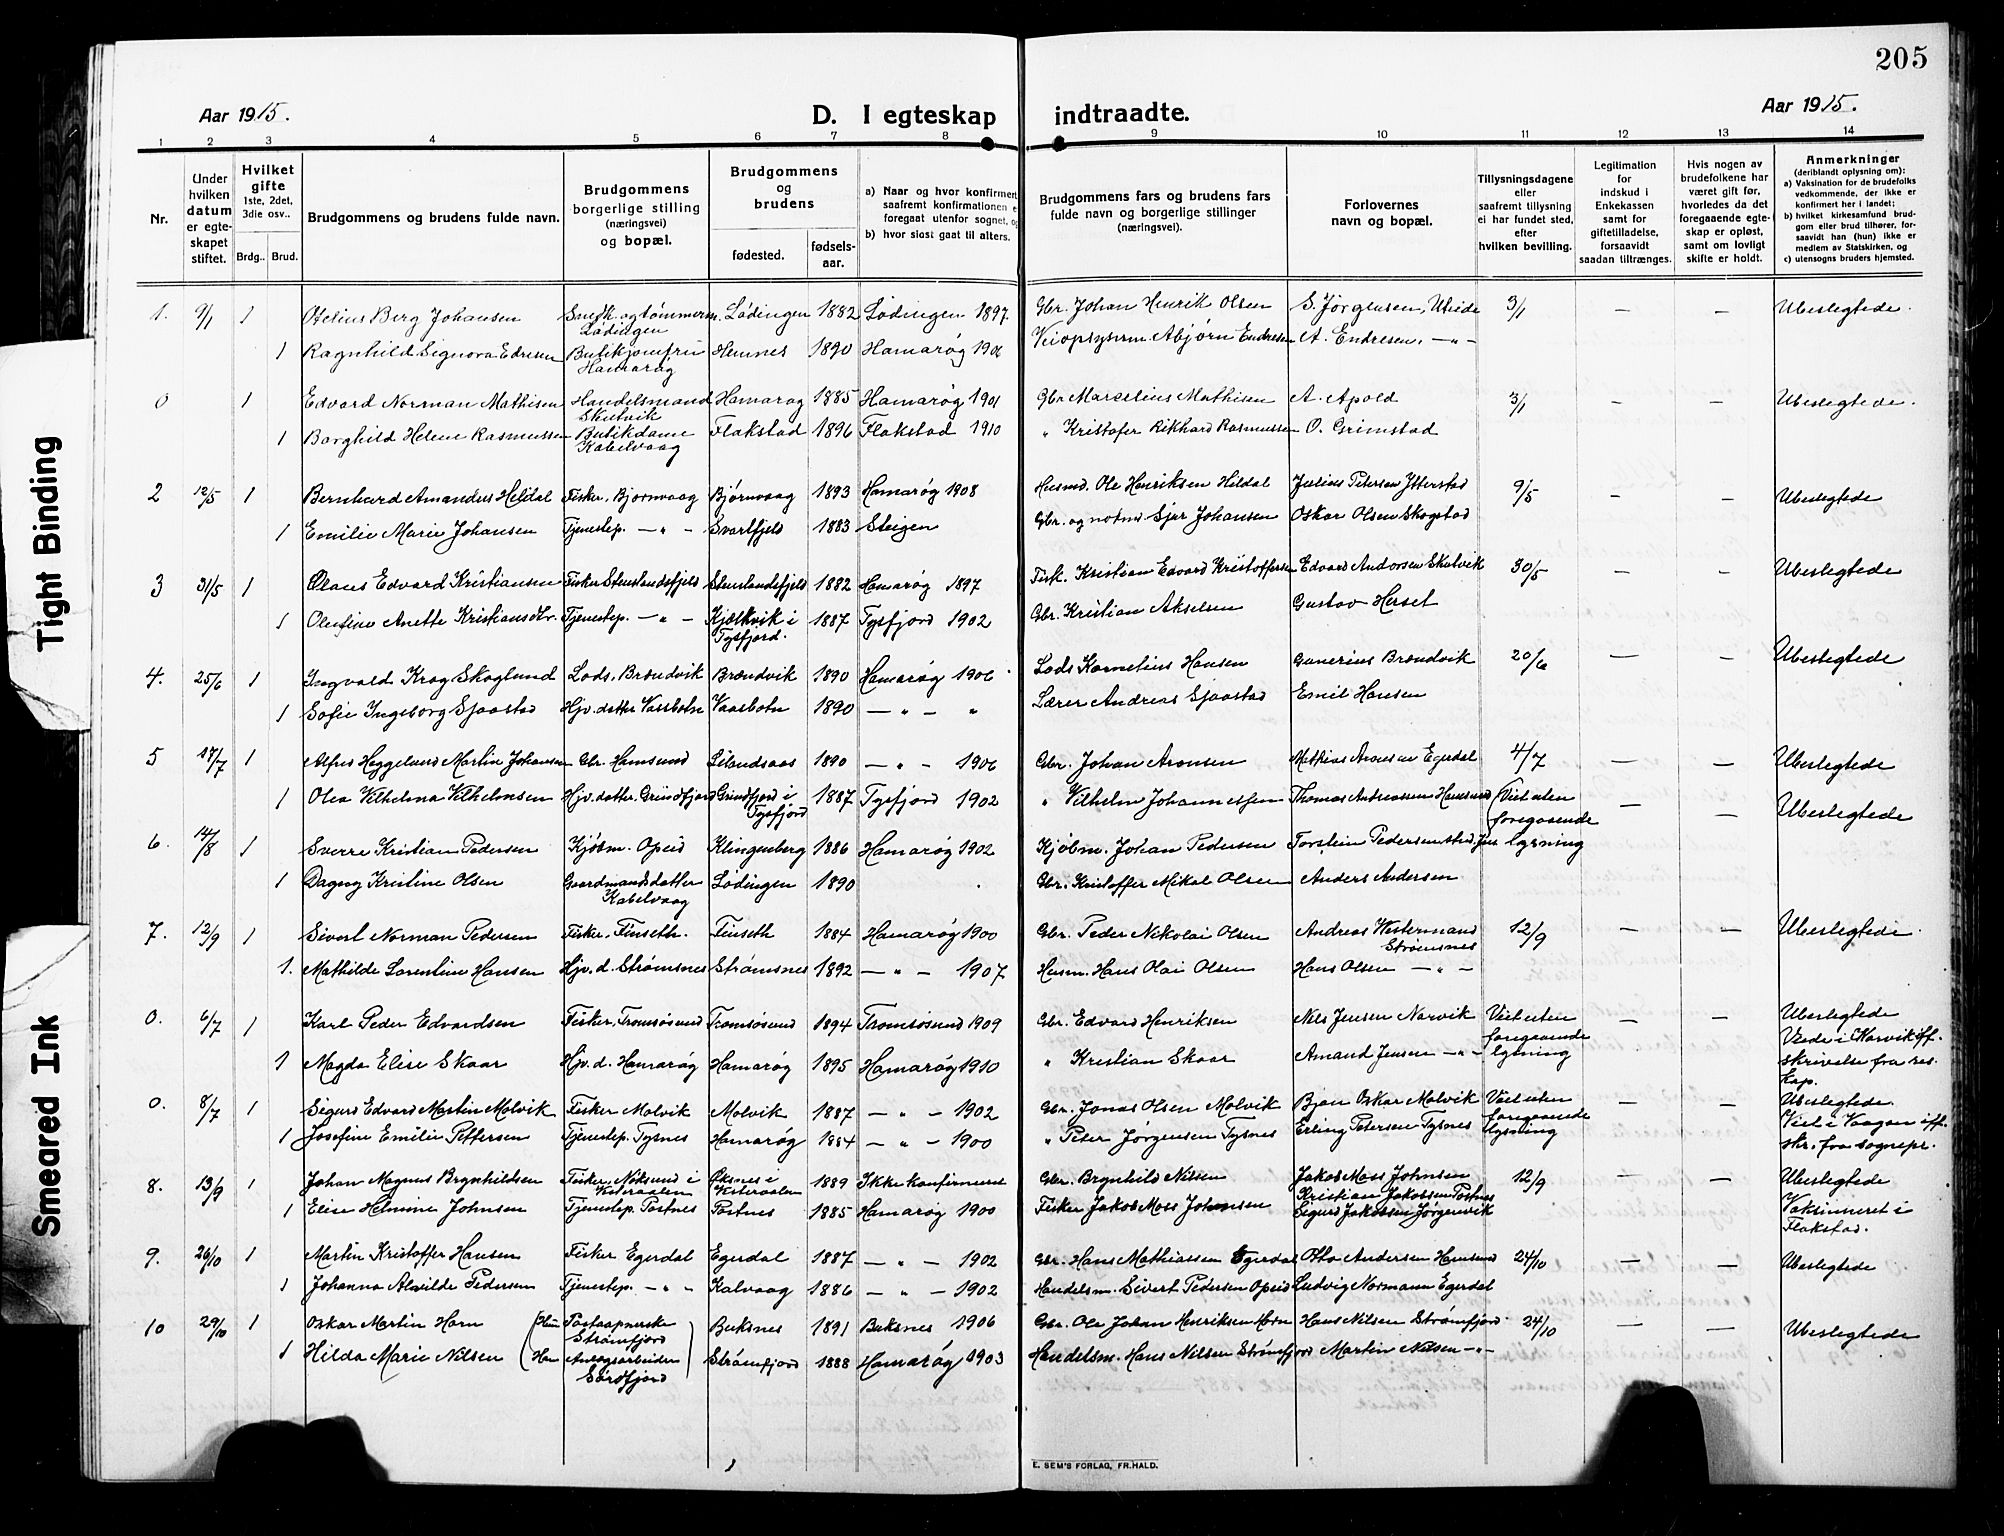 205
Aar 1915.
D. I egteskap indtraadte.
Aar 1915.
1 2 3 4 5 6 7 8 9 10 11 12 13 14
Nr.
Under hvilken datum er egteskapet stiftet.
Hvilket gifte 1ste, 2det, 3die osv..
Brdg.. Brud.
Brudgommens og brudens fulde navn.
Brudgommens borgerlige stilling (næringsvei) og bopæl.
Brudgommens og brudens
fødested. fødselsaar.
a) Naar og hvor konfirmert
saafremt konfirmationen e
foregaat utenfor sognet, og
b) hvor sidst gaat til alters.
Brudgommens fars og brudens fars
fulde navn og borgerlige stillinger
(næringsvei).
Forlovernes
navn og bopæl.
Tillysningsdagene
eller
saafremt tillysning
ei har fundet sted,
efter
hvilken bevilling.
Legitimation
for
indskud i
Enkekassen
samt for
giftetilladelse,
forsaavidt
saadan tiltrænges.
Hvis nogen av
brudefolkene har
været gift før,
hvorledes da det
foregaaende egte-
skap er opløst,
samt om lovligt
skifte er holdt.
Anmerkninger
(deriblandt oplysning om):
a) Vaksination for de brudefolks
vedkommende, der ikke er
konfirmert her i landet;
b) hvilket kirkesamfund brud-
gom eller brud tilhører, for-
saavidt han (hun) ikke er
medlem av Statskirken, og
c) utensogns bruders hjemsted.
1. 9/1 1 Berg Johansen Snedk. og tømmerm. Lødingen Lødingen 1882 Lødingen 1897 Gbr. Johan Henrik Olsen S. Jørgensen, 3/1 — — Ubeslegtede.
1 Ragnhild Signora Edresen Butikjomfru Hamarøg Hemnes 1890 Hamarøg Abjørn Endresen A. Endresen. — " —
0 1 Edvard Norman Mathisen Handelsmand Skutvik Hamarøg 1885 Hamarøg 1901 Gbr Marselius Mathisen A. Apold 3/1 — — Ubeslegtede.
1 Borghild Helene Rasmussen Butikdame Kabelvaag Flakstad 1896 Flakstad 1910 " Kristofer Rikhard Rasmussen O. Grimstad
2 12/5 1 Bernhard Amandus Heldal Fisker, Bjørnvaag Bjørnvaag 1893 Hamarøg 1908 Husmd. Ole Henriksen Hildal Julius Petersen Ytterstad 9/5 — — Ubeslegtede
1 Emilie Marie Johansen Tjenestep. — " — Svartfjeld 1883 Steigen Gbr. og Sjur Johansen Oskar Olsen Skogstad
3 31/5 1 Olaus Edvard Kristiansen Fisker Stenslandsfjeld Stenslandsfjeld 1882 Hamarøg 1897 Fisk. Kristian Edvard Kristoffersen Edvard Andorsen Skutvik 30/5 — — Ubeslegtede
1 Olufine Anette Kristiansdtr. Tjenestep. — " — Kjelkvik i Tysfjord. 1887 Tysfjord 1902 Gbr. Kristian Akselsen Gustav Herset
4. 25/6 1 Ingvald Krog Skoglund Lods, Brøndvik Brøndvik 1890 Hamarøg 1906 Lods Kornelius Hansen Gunerius Brøndvik 20/6 — — Ubeslegtede
1 Sofie Ingeborg Sjaastad Hjv. datter Vassbotn Vassbotn 1890 — " — " Lærer Andreas Sjaastad Emil Hansen
5 17/7 1 Alfred Heggeland Martin Johansen Gbr. Hamsund 1890 — " — 1906 Gbr. Johan Aronsen Mathias Aronsen Egerdal 4/7 — — Ubeslegtede
1 Olea Vilhelmna Vilhelmsen Hjv. datter. Grundfjord Grundfjord i Tysfjord 1887 Tysfjord 1902 " Vilhelm Johannessen Thomas Andreassen Hamsund
6. 14/8 1 Sverre Kristian Pedersen Kjøbm. Opeid Klingenberg 1886 Hamarøg 1902 Kjøbm. Johan Pedersen Torstein Pedersen Viet uten foregaaende lysning — — Ubeslegtede
1 Dagny Kristine Olsen Gaardmandsdatter Kabelvaag Lødingen 1890 Gbr. Kristoffer Mikal Olsen Anders Andersen
7. 12/9 1 Sivert Norman Pedersen Fisker, Finseth. Finseth 1884 Hamarøg 1900 Gbr. Peder Nikolai Olsen Andreas Westermand Strømsnes 12/9 — — Ubeslegtede.
1. Mathilde Lorentine Hansen Hjv. d. Strømsnes Strømsnes 1892 — " — 1907 Husm. Hans Olai Olsen Hans Olsen — " —
0. 6/7 1 Karl Peder Edvardsen Fisker, Tromsøsund Tromsøsund 1894 Tromsøsund 1909 Gbr. Edvard Henriksen Nils Jensen Narvik Viet uten foregaaende lysning — — Ubeslegtede
1 Magda Elise Skaar Hjv. d. Hamarøg Hamarøg 1895 Hamarøg 1910 " Kristian Skaar Amand Jensen — " — Viede i Narvik iff. skrivelse fra res. kap.
0. 8/7 1 Sigurd Edvard Martin Molvik Fisker Molvik Molvik 1887 — " — 1902 Gbr. Jonas Olsen Molvik Bjan Oskar Molvik Viet uten foregaaende lysning — — Ubeslegtede.
1 Josefine Emilie Pettersen Tjenestep. Tysnes Hamarøg 1884 — " — 1900 " Peter Jørgensen Tysnes Erling Petersen Tysnes Viet i Vaagan iff. skr. fra sognepr.
8. 13/9 1 Johan Magnus Brynhildsen Fisker, i Vesteraalen Øksnes i Vesteraalen 1889 Ikke konfirmeret Gbr. Brynhild Nilsen Jakob Moss Johnsen 12/9 — — Ubeslegtede
1 Elise Helmine Johnsen Tjenestep. Tostnes Tostnes 1885 Hamarøg 1900 Fisker Jakob Moss Johnsen Kristian Jakobsen Tostnes Sigurd Jakobsen Jørgenvik Vaksineret i Flakstad.
9. 26/10 1 Martin Kristoffer Hansen Fisker Egerdal Egerdal 1887 — " — 1902 Gbr. Hans Mathiassen Egerdal Otto Andersen Hamsund 24/10 — — Ubeslegtede
1 Johanna Alvilde Pedersen Tjenestep. — " " Kalvaag 1886 — " — 1902 Handelsm. Sivert Pedersen Opeid Ludvig Normann Egerdal
10 29/10 1 Oskar Martin Horn (Hun Postaapnerske Strømfjord Buksnes 1891 Buksnes 1906 Gbr. Ole Johan Henriksen Horn Hans Nilsen Strømfjord 24/10 — — Ubeslegtede
1 Hilda Marie Nilsen (Han Anlægsarbeider Sørdfjord Strømfjord 1888 Hamarøg 1903 Handelsm. Hans Nilsen Strømfjord Martin Nilsen — " —
E. SEM'S FORLAG, FR.HALD.
Tight Binding
Smeared Ink